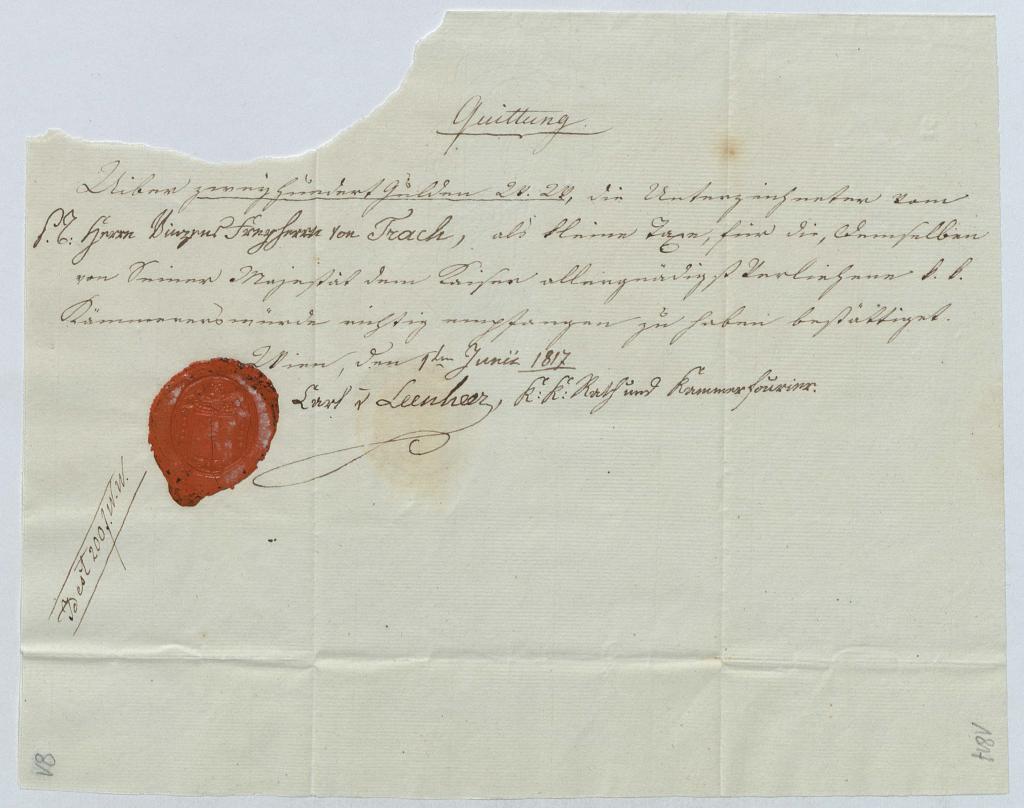 Quittung.
Uiber zweyhundert Gulden W. W., die Unterzeichneter vom
Herrn Vinzens Freyherrn von Trach, als kleine Taxe, für die, Demselben
von Seiner Majestät dem Kaiser allergnädigst verliehene k. k.
Kämmererswürde richtig empfangen zu haben bestättiget.
Wien, den 1ten Junii 1817
Carl v Leenheer, K: K: Rath und Kammerfourier.
200 f. W. W.
V8
1817